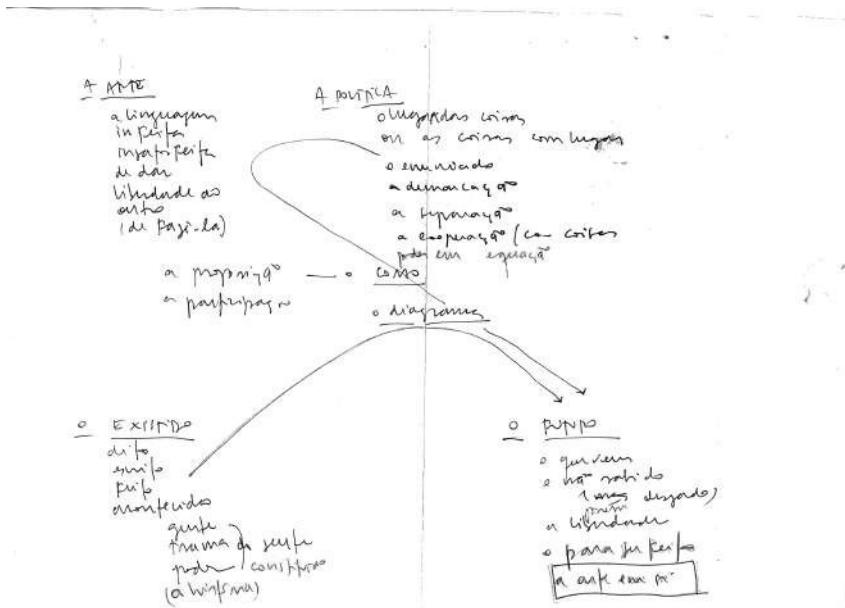 A ARTE
a linguagem
imperfeita
insatisfeita
de dar
liberdade ao
outro
(de fazê-la)
A POLÍTICA
o lugar das coisas
ou as coisas com lugar
o enunciado
a demarcação
a separação
a cooperação (com coisas
poder em equação
a proposição — o COMO
a participação
o diagrama
O EXISTIDO
dito
escrito
feito
acontecido
gente
trama de gente
poder constituído
(a história)
O FUTURO
o que vem
o não sabido
(mas desejado)
porém
a liberdade
o para ser feito
a arte em si